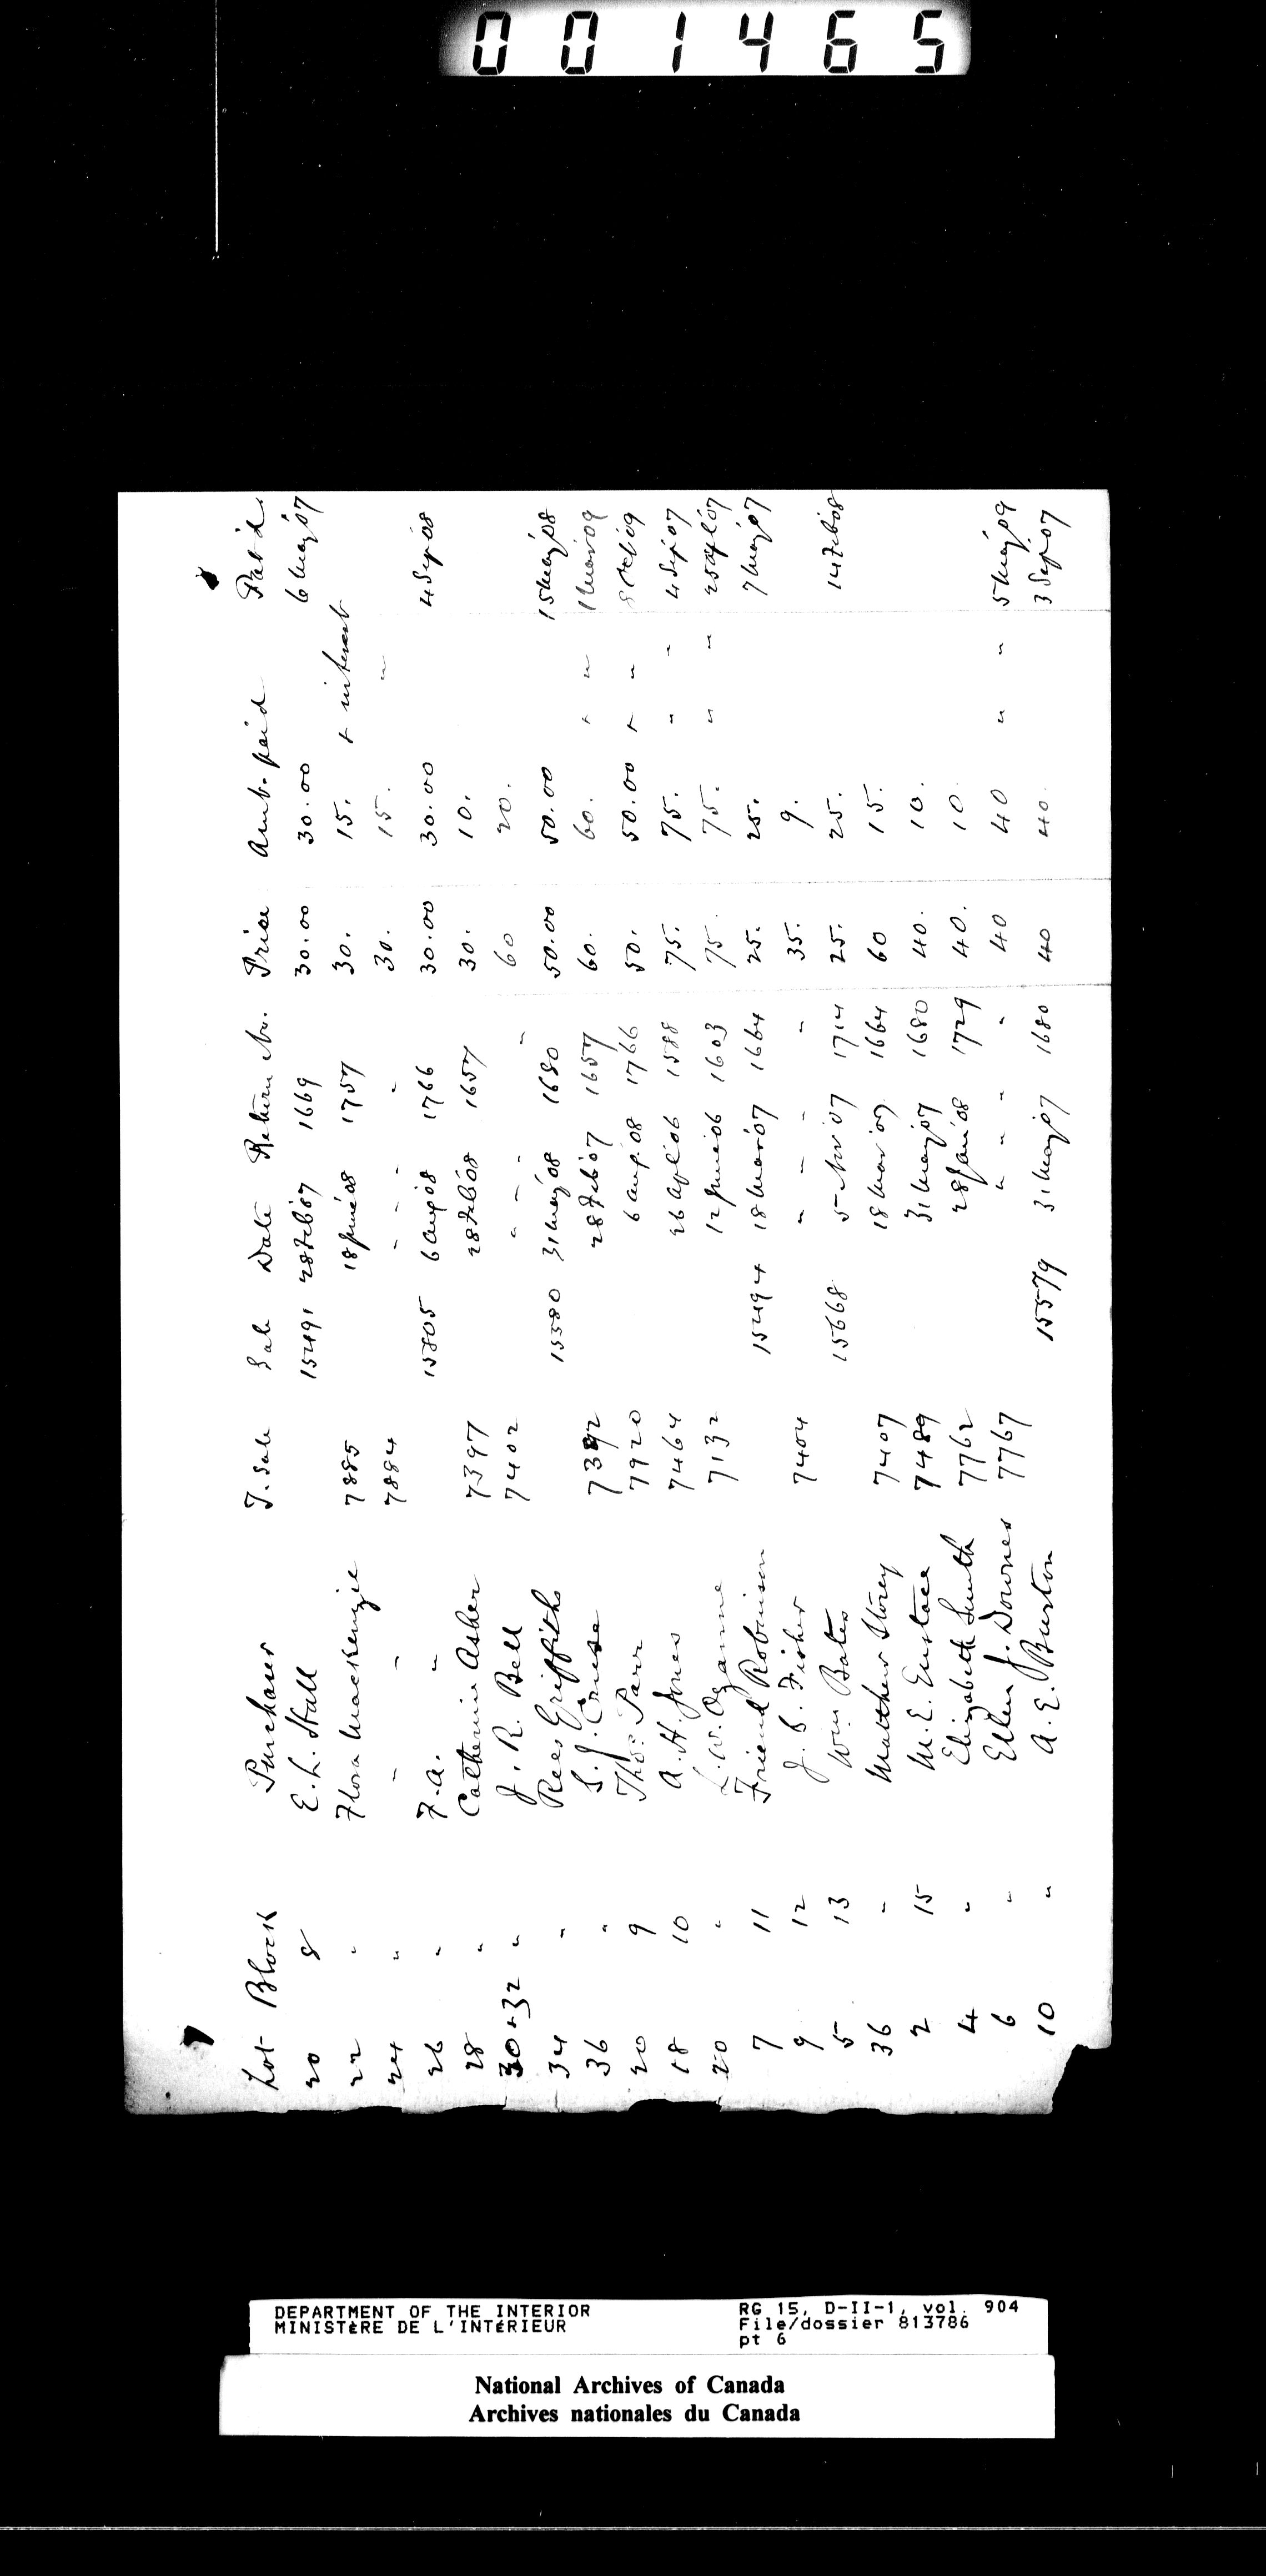 001465
Lot Block Purchaser T. Sale Sale Date Return No. Price Amt. paid Pat'd.
20 8 E. L. Hall 15491 28 Feb'07 1669 30.00 30.00 6 May'07
22 " Flora MacKenzie 7885 18 June'08 1757 30. 15. + interest
24 " " " 7884 " " " 30. 15. "
26 " F. A. " 15805 6 Aug'08 1766 30.00 30.00 4 Sep'08
28 " Catherine Asher 7397 28 Feb'08 1657 30. 10.
30+32 " J. R. Bell 7402 " " " " 60 20.
34 " Rees Griffiths 15580 31 May'08 1680 50.00 50.00 15 May'08
36 " S. J. Cruse 7392 28 Feb'07 1657 60. 60. + " 1 Mar 09
20 9 Thos. Parr 7920 6 Aug.'08 1766 50. 50.00 + " 8 Feb 09
18 10 A. H. Jones 7464 26 Apl'06 1588 75. 75. " " 4 Sep'07
20 " L. W. Oganne 7132 12 June 06 1603 75. 75. " " 25 Apl'07
7 11 Friend Robinson 15494 18 Mar'07 1664 25. 25. 7 May'07
9 12 J. S. Fisher 7404 " " " " 35. 9.
5 13 Wm Bates 15668 5 Nov'07 1714 25. 25. 14 Feb'08
36 " Matthew Storey 7407 18 Mar 07 1664 60 15.
2 15 M. E. Eustace 7489 31 May'07 1680 40. 10.
4 " Elizabeth Smith 7762 28 Jan'08 1729 40. 10.
6 " Ellen J. Downes 7767 " " " " 40 40 " " 5 May'09
10 " A. E. Burton 15579 31 May'07 1680 40 40. 3 Sep'07
DEPARTMENT OF THE INTERIOR
MINISTÈRE DE L'INTÉRIEUR
RG 15, D-II-1, vol. 904
File/dossier 813786
pt 6
National Archives of Canada
Archives nationales du Canada